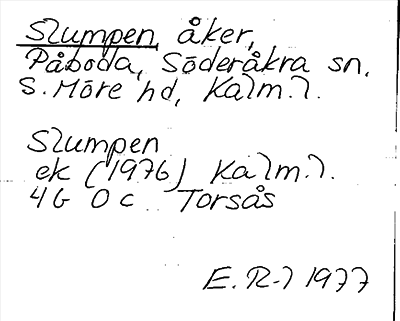 Slumpen åker,
Påboda, Söderåkra sn.
S. Möre hd, Kalm. l.
Slumpen
ek (1976) Kalm. l.
4G 0c Torsås
E. R-l 1977